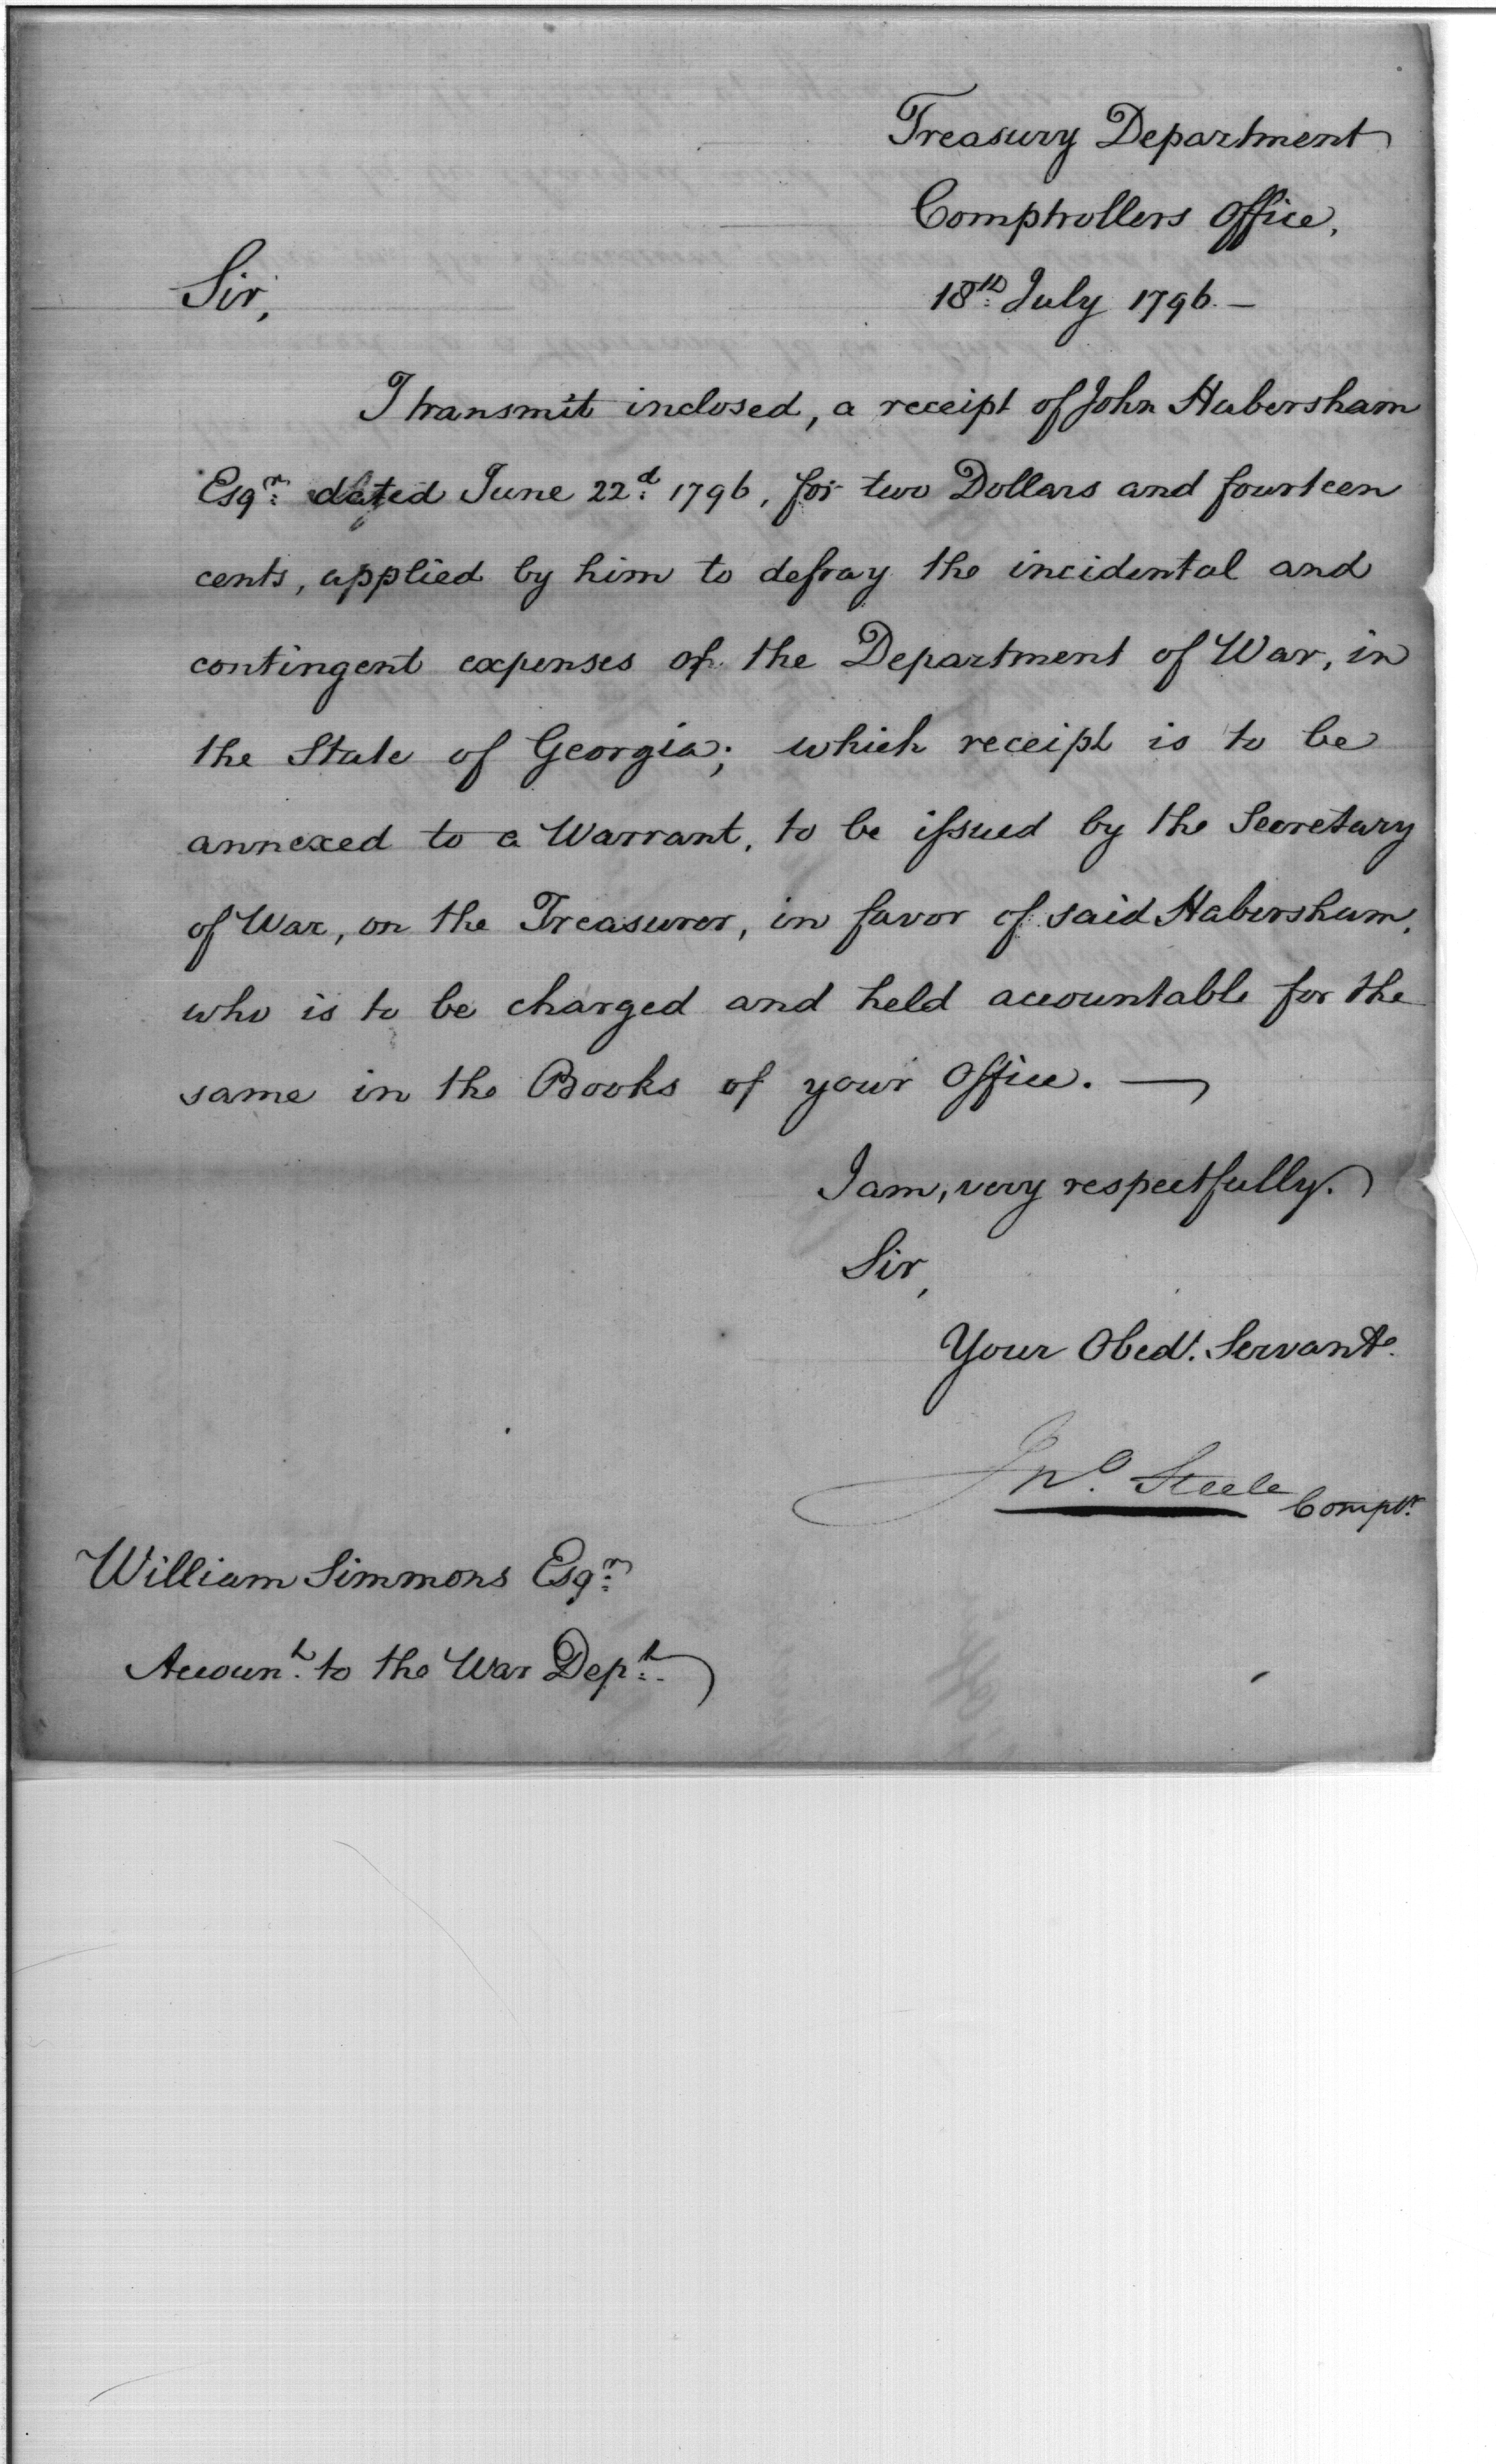 Treasury Department
Comptrollers Office,
18th. July 1796. —
Sir,
I transmit inclosed, a receipt of John Habersham
Esqr. dated June 22d. 1796, for two Dollars and fourteen
cents, applied by him to defray the incidental and
contingent expenses of the Department of War, in
the State of Georgia; which receipt is to be
annexed to a Warrant, to be issued by the Secretary
of War, on the Treasurer, in favor of said Habersham,
who is to be charged and held accountable for the
same in the Books of your Office. —
I am, very respectfully.
Sir,
Your Obedt. Servant.
Jno. Steele Compr.
William Simmons Esqr.
Account. to the War Dept.